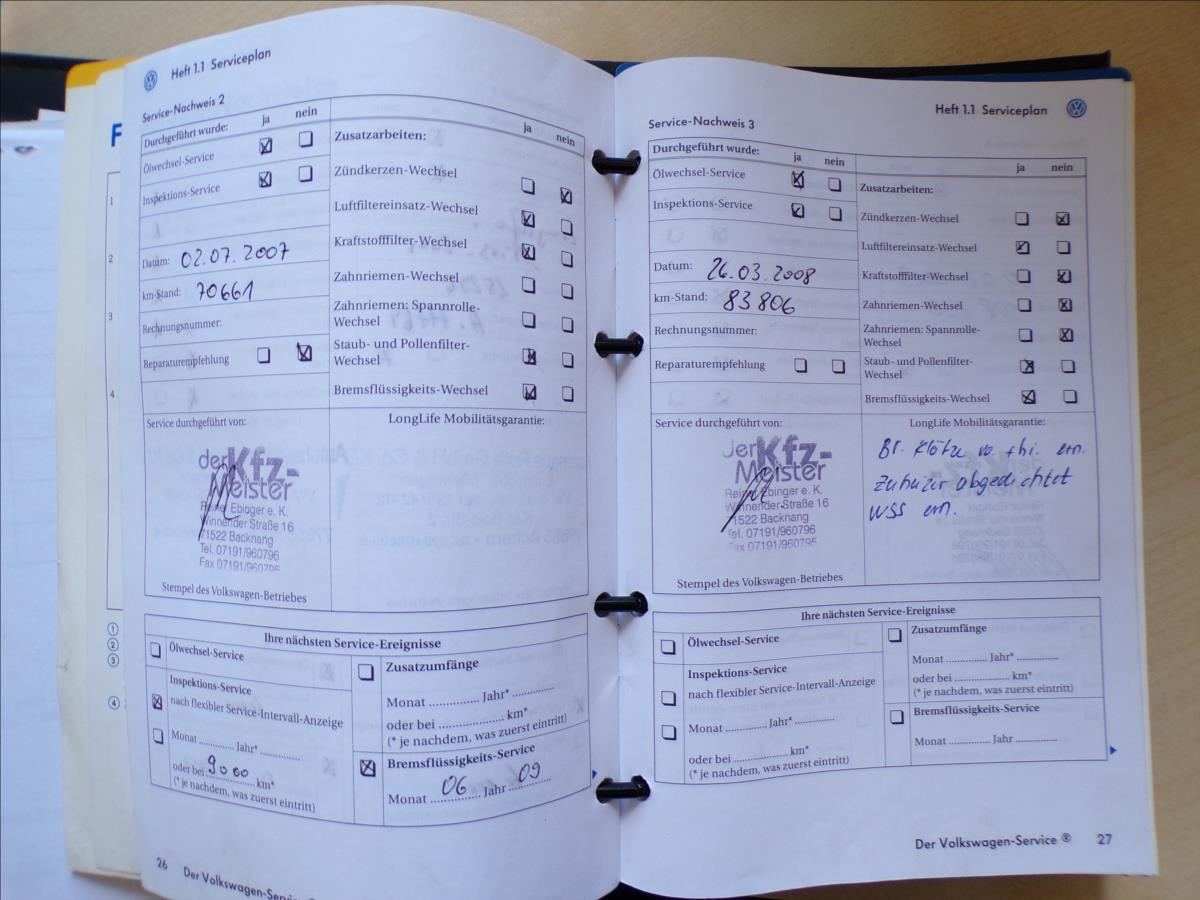 Heft 1.1 Serviceplan
Service-Nachweis 2
Durchgeführt wurde: ja nein
Ölwechsel-Service
Inspektions-Service
Datum: 02.07.2007
km-Stand: 70661
Rechnungsnummer:
Reparaturempfehlung
ja nein
Zusatzarbeiten:
Zündkerzen-Wechsel
Luftfiltereinsatz-Wechsel
Kraftstofffilter-Wechsel
Zahnriemen-Wechsel
Zahnriemen: Spannrolle-
Wechsel
Staub- und Pollenfilter-
Wechsel
Bremsflüssigkeits-Wechsel
Service durchgeführt von:
LongLife Mobilitätsgarantie:
der Kfz-
Meister
Reiner Ebinger e. K.
Winnender Straße 16
71522 Backnang
Tel. 07191/960796
Fax 07191/960795
Stempel des Volkswagen-Betriebes
Ihre nächsten Service-Ereignisse
Ölwechsel-Service
Inspektions-Service
nach flexibler Service-Intervall-Anzeige
Monat ............ Jahr* ............
oder bei 9000 km*
(* je nachdem, was zuerst eintritt)
Zusatzumfänge
Monat ............ Jahr* ............
oder bei .................... km*
(* je nachdem, was zuerst eintritt)
Bremsflüssigkeits-Service
Monat 06 Jahr 09
26
Der Volkswagen-Service
Heft 1.1 Serviceplan
Service-Nachweis 3
Durchgeführt wurde: ja nein
Ölwechsel-Service
Inspektions-Service
Datum: 26.03.2008
km-Stand: 83806
Rechnungsnummer:
Reparaturempfehlung
ja nein
Zusatzarbeiten:
Zündkerzen-Wechsel
Luftfiltereinsatz-Wechsel
Kraftstofffilter-Wechsel
Zahnriemen-Wechsel
Zahnriemen: Spannrolle-
Wechsel
Staub- und Pollenfilter-
Wechsel
Bremsflüssigkeits-Wechsel
Service durchgeführt von:
LongLife Mobilitätsgarantie:
Jer Kfz-
Meister
Reiner Ebinger e. K.
Winnender Straße 16
71522 Backnang
Tel. 07191/960796
Fax 07191/960795
Br. Klötze hi. ern.
abgedichtet
WSS ern.
Stempel des Volkswagen-Betriebes
Ihre nächsten Service-Ereignisse
Ölwechsel-Service
Inspektions-Service
nach flexibler Service-Intervall-Anzeige
Monat ............ Jahr* ............
oder bei .................... km*
(* je nachdem, was zuerst eintritt)
Zusatzumfänge
Monat ............ Jahr* ............
oder bei .................... km*
(* je nachdem, was zuerst eintritt)
Bremsflüssigkeits-Service
Monat ............ Jahr ............
Der Volkswagen-Service ® 27